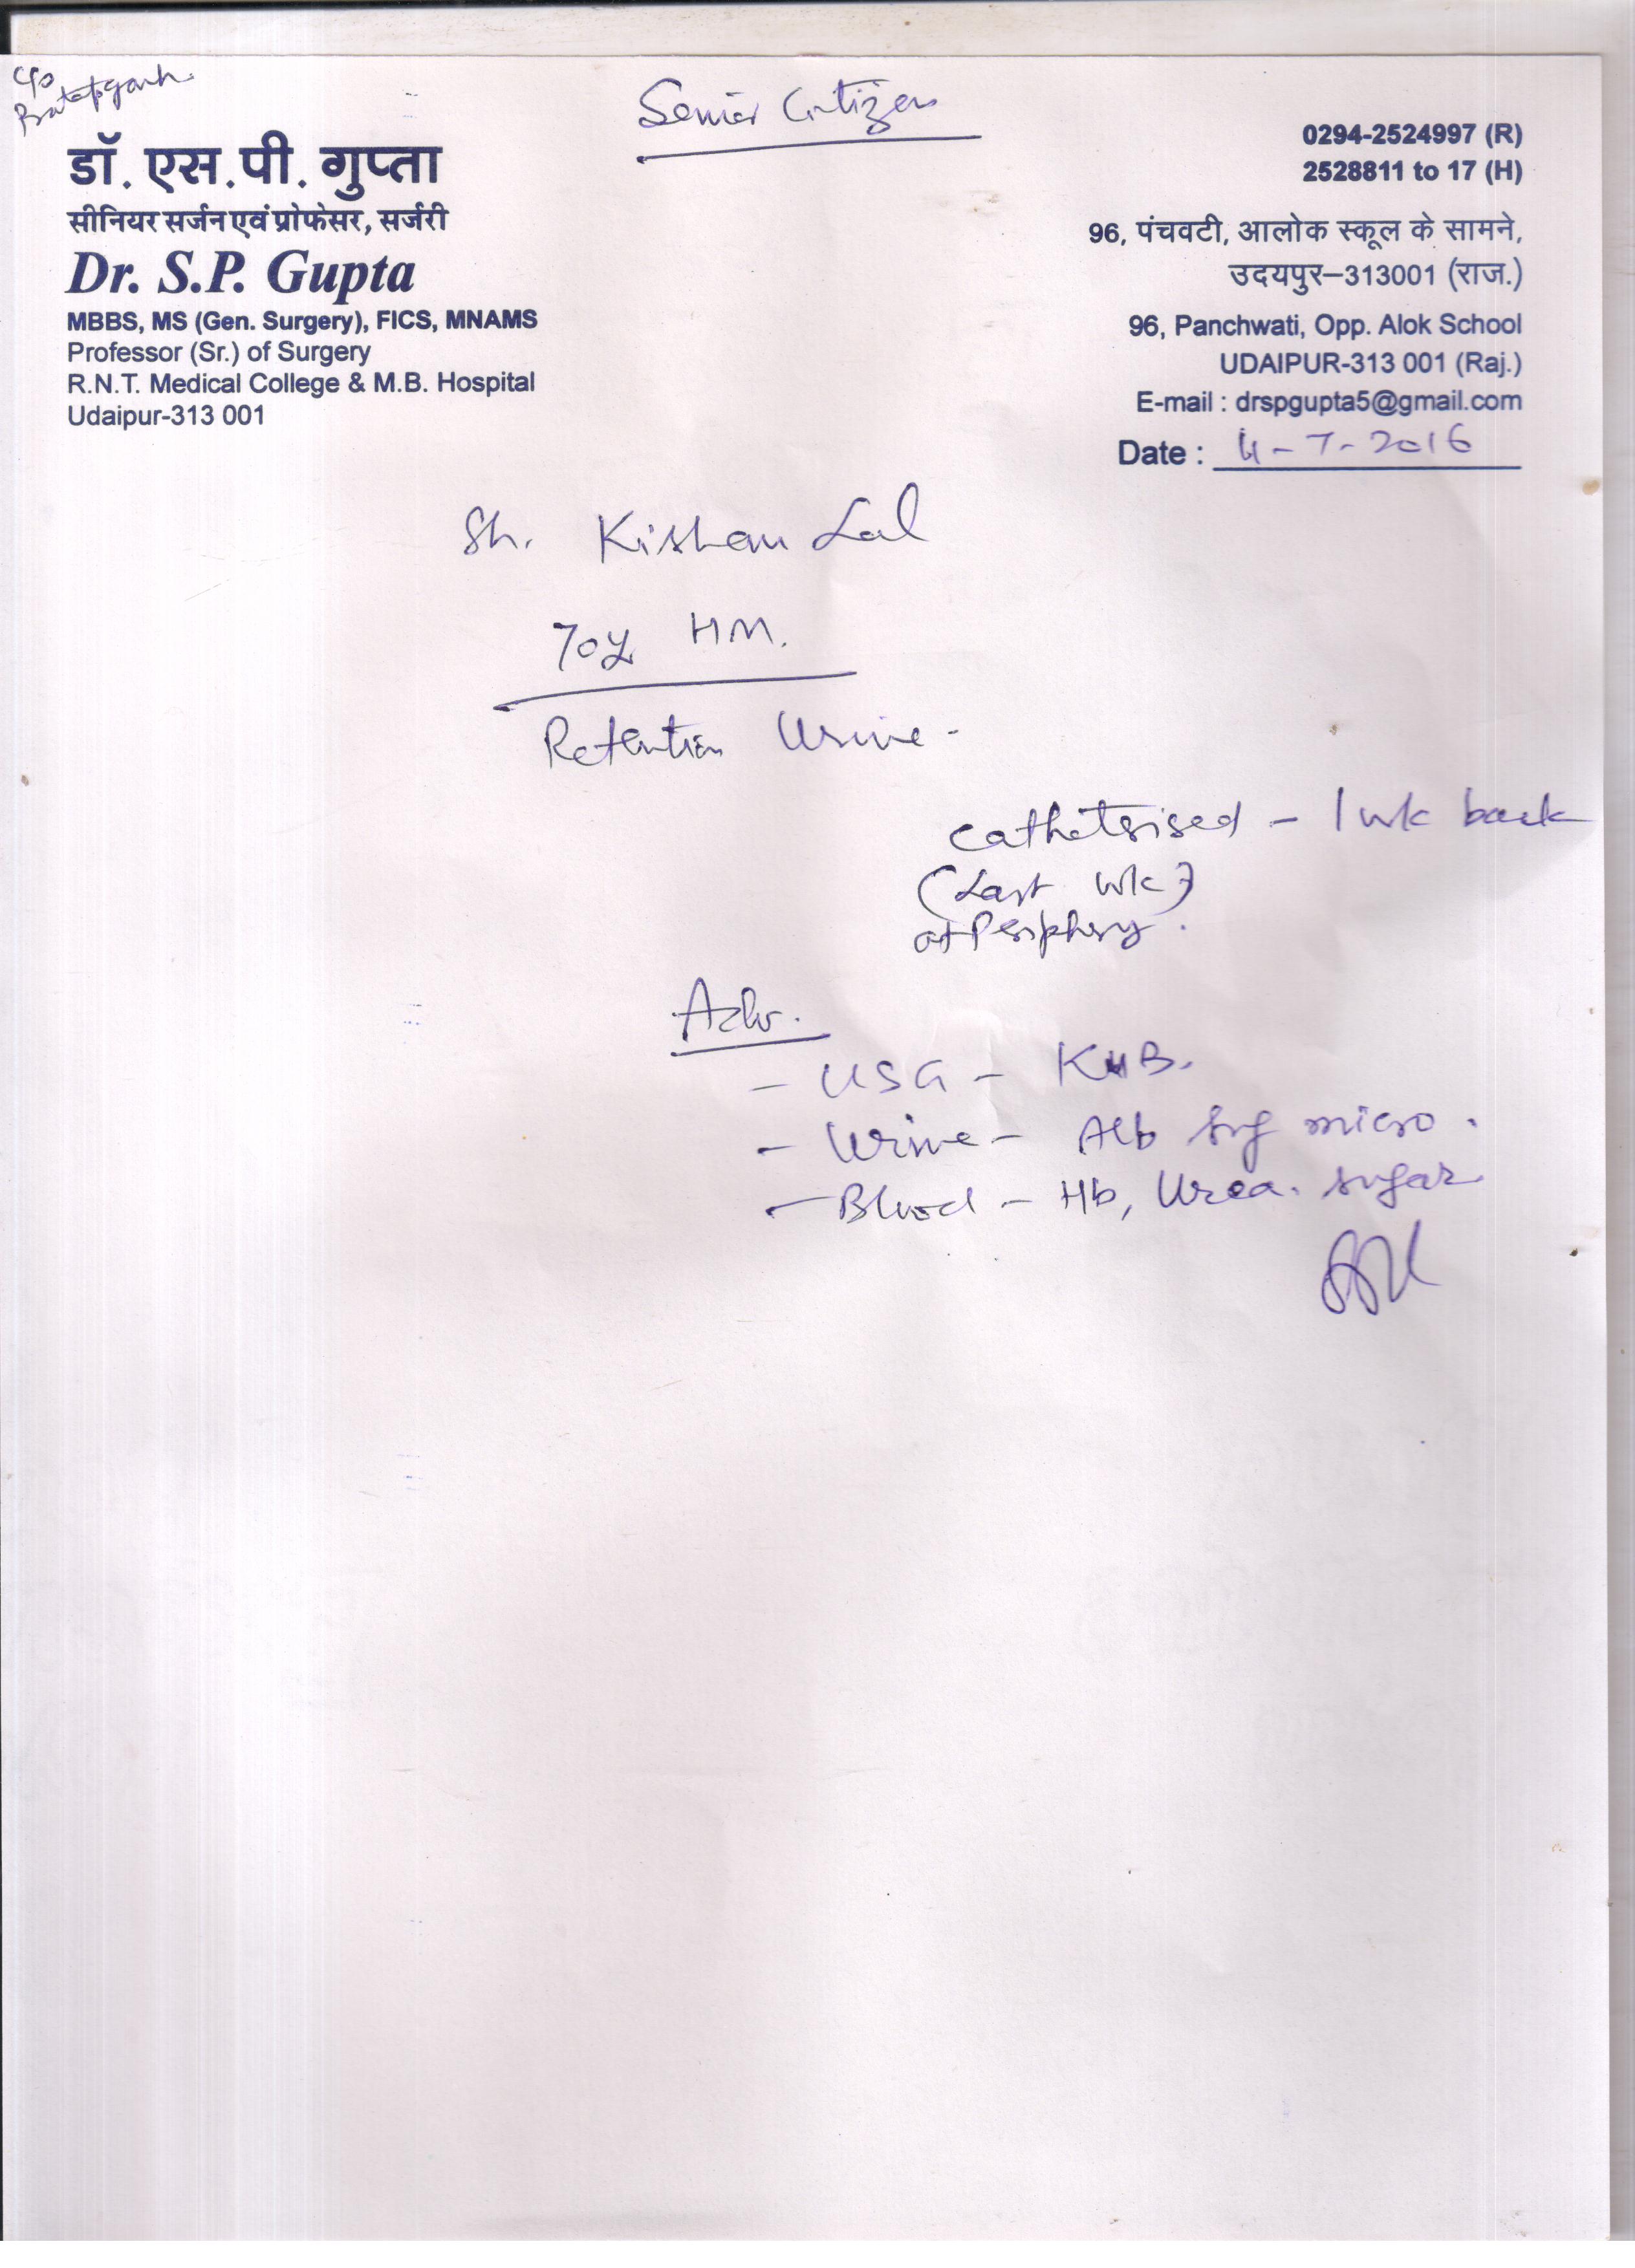 c/o
Pratapgarh.
Senior Citizen
डॉ. एस.पी. गुप्ता
सीनियर सर्जन एवं प्रोफेसर, सर्जरी
Dr. S.P. Gupta
MBBS, MS (Gen. Surgery), FICS, MNAMS
Professor (Sr.) of Surgery
R.N.T. Medical College & M.B. Hospital
Udaipur-313 001
0294-2524997 (R)
2528811 to 17 (H)
96, पंचवटी, आलोक स्कूल के सामने,
उदयपुर–313001 (राज.)
96, Panchwati, Opp. Alok School
UDAIPUR-313 001 (Raj.)
E-mail : drspgupta5@gmail.com
Date : 4-7-2016
Sh. Kishan Lal
70y HM.
Retention Urine -
Catheterised - 1 wk back
(Last wk)
at Periphery.
Adv.
- USG - KUB.
- Urine - Alb Sug micro.
- Blood - Hb, Urea. Sugar